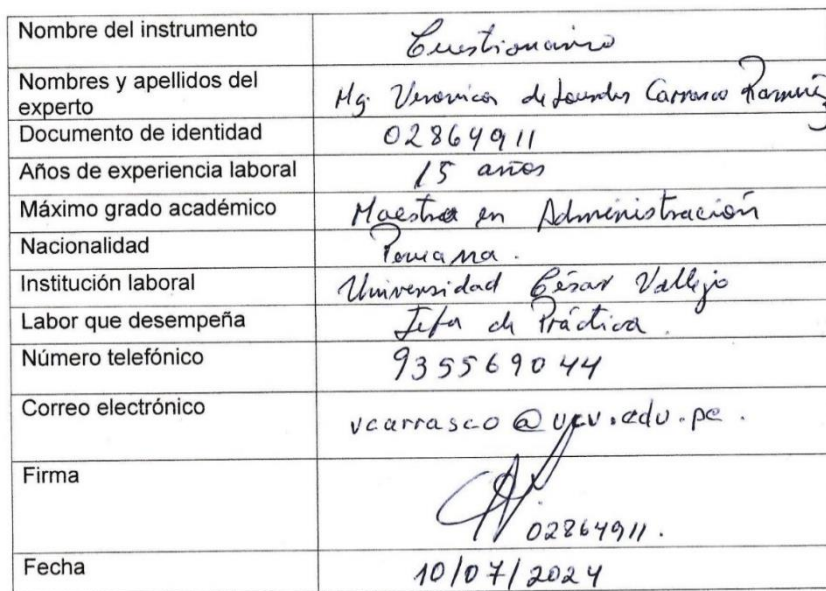 Nombre del instrumento Cuestionario
Nombres y apellidos del
experto Mg. Veronica de Lourdes Carrasco Ramírez
Documento de identidad 02864911
Años de experiencia laboral 15 años
Máximo grado académico Maestra en Administración
Nacionalidad Peruana.
Institución laboral Universidad César Vallejo
Labor que desempeña Jefa de Práctica.
Número telefónico 935569044
Correo electrónico vcarrasco@ucv.edu.pe.
Firma
02864911.
Fecha 10/07/2024